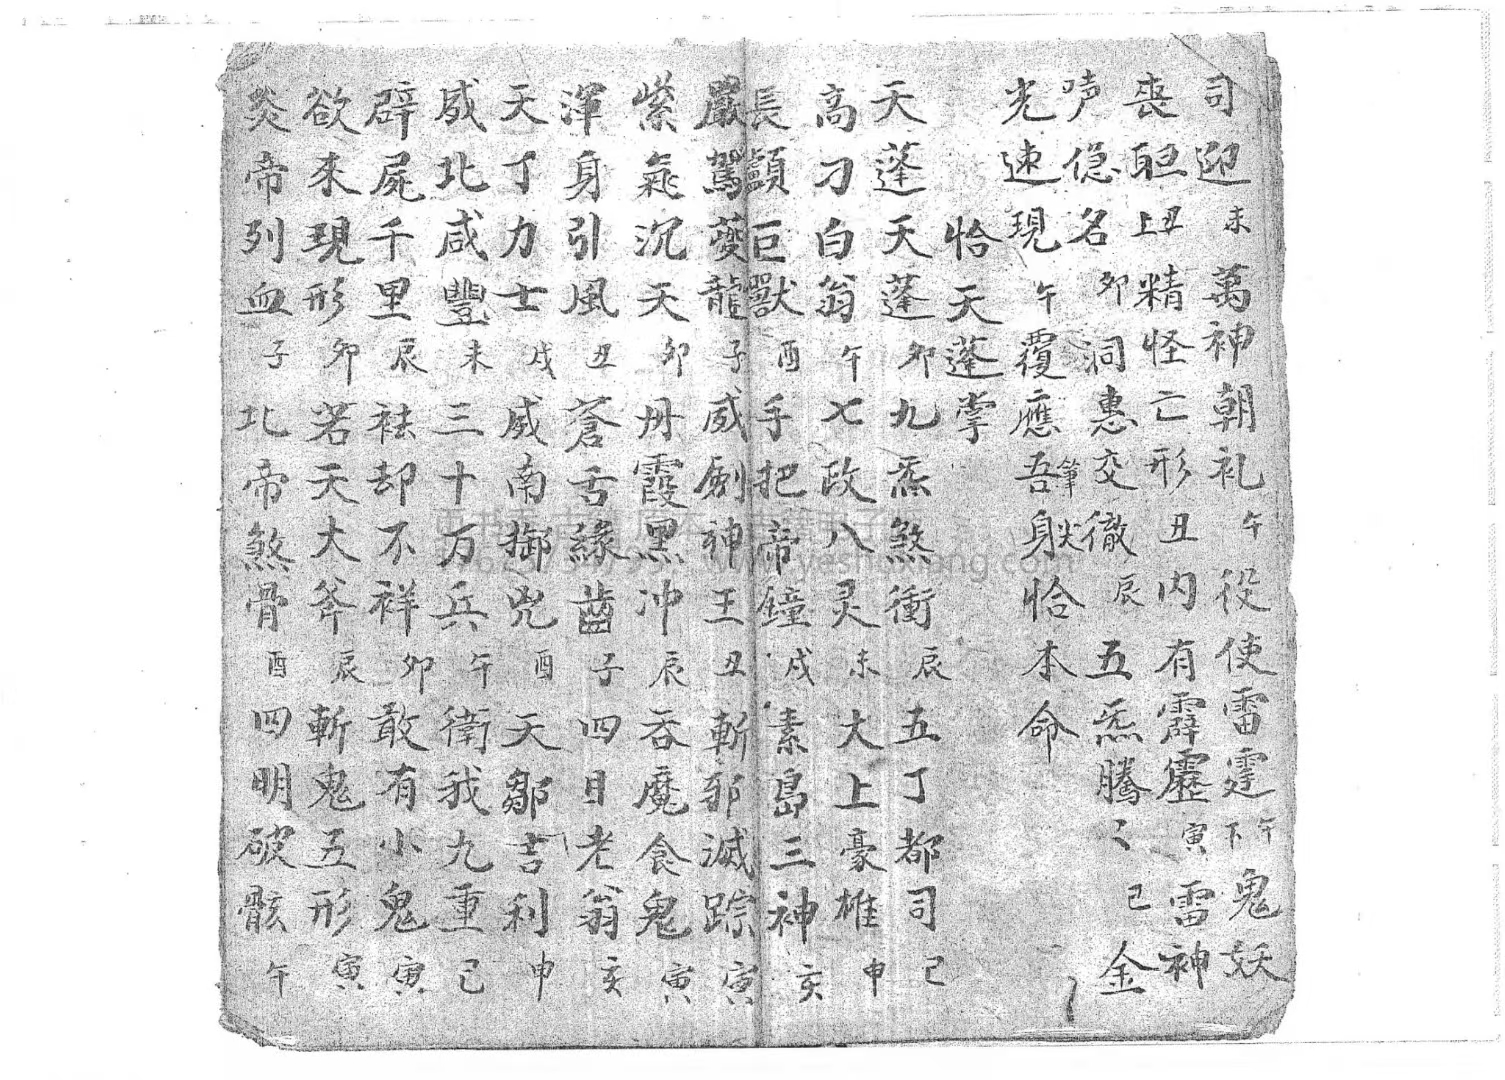 司迎未萬神朝礼午役使雷霆午下鬼妖
喪胆丑上精怪亡形丑内有霹靂寅雷神
声隐名卯洞惠交徹辰五炁騰〻己金
光速現午覆應吾身恰本命
恰天蓬掌
天蓬天蓬卯九炁煞衝辰五丁都司己
高刁白翁午七政八灵未大上豪雄申
長顱巨獸酉手把帝鐘戌素島三神亥
嚴駕夔龍子威劍神王丑斬邪滅踪寅
紫氣沉天卯丹霞黑冲辰吞魔食鬼寅
渾身引風丑蒼舌緣齒子四目老翁亥
天丁力士戌威南御兇酉天鄒吉利申
威北咸豐未三十万兵午衛我九重己
辟屍千里辰祛却不祥卯敢有小鬼寅
欲來現形卯若天大斧辰斬鬼五形寅
炎帝列血子北帝煞骨酉四明破骸午